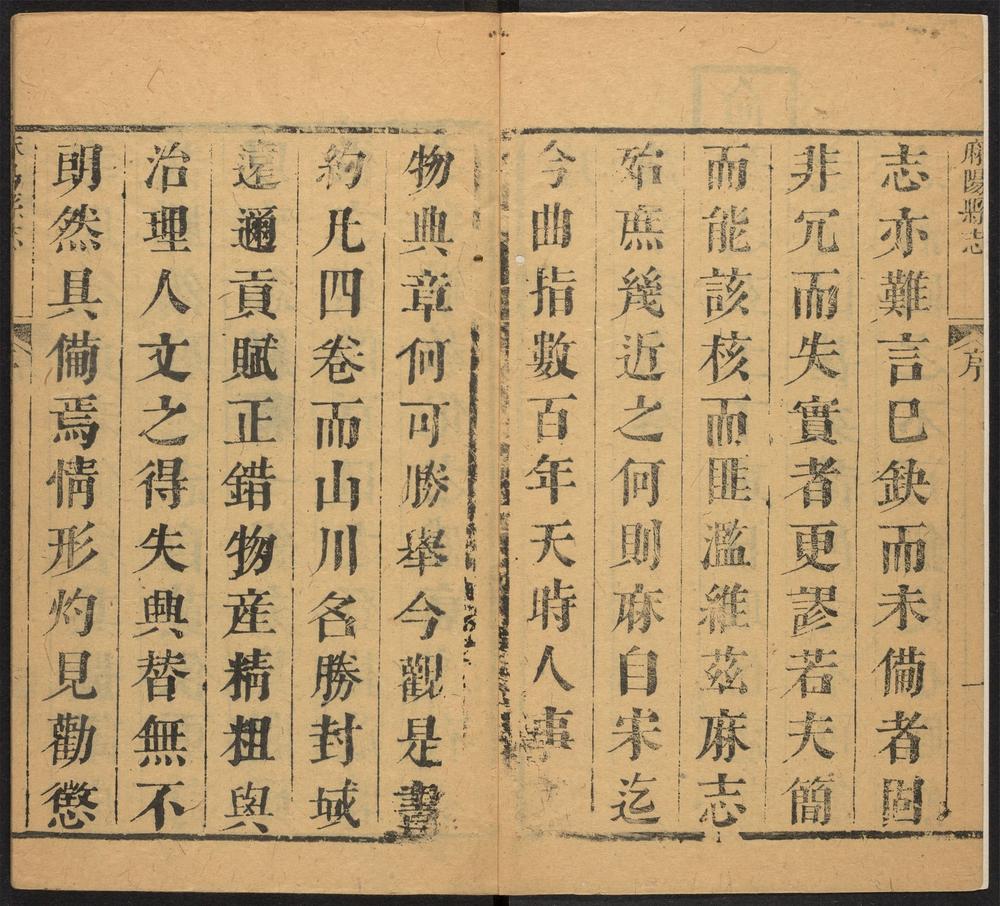 麻陽縣志
序
一
志亦難言已缺而未備者固
非冗而失實者更謬若夫簡
而能該核而匪濫維茲麻志
殆庶幾近之何則麻自宋迄
今曲指數百年天時人事
物典章何可勝舉今觀是書
約凡四卷而山川名勝封域
遠邇貢賦正錯物産精粗與
治理人文之得失興替無不
朗然具備焉情形灼見勸懲